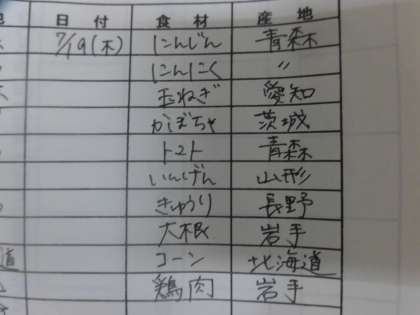 日付 食材 産地
7/19(木) にんじん 青森
にんにく 〃
玉ねぎ 愛知
かぼちゃ 茨城
トマト 青森
いんげん 山形
きゅうり 長野
大根 岩手
道 コーン 北海道
鶏肉 岩手